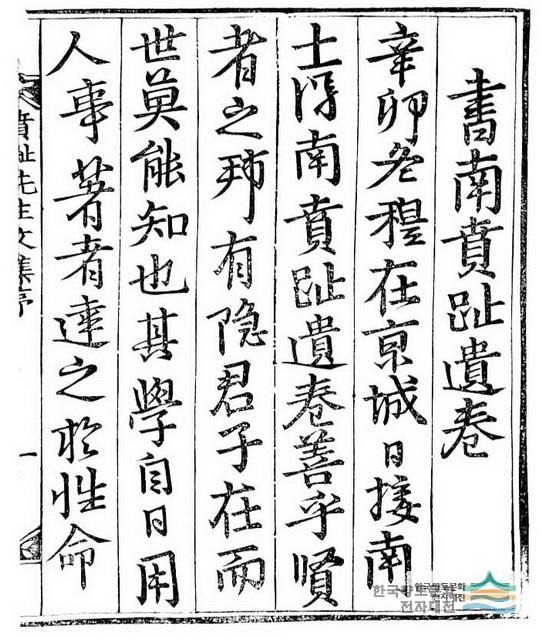 書南賁趾遺卷
辛卯冬在京城日接南
士得南賁趾遺卷善乎賢
者之邦有隐君子在而
世莫能知也其學自日用
人事著者達之於性命
賁趾先生文集序
一
한국향토문화
전자대전